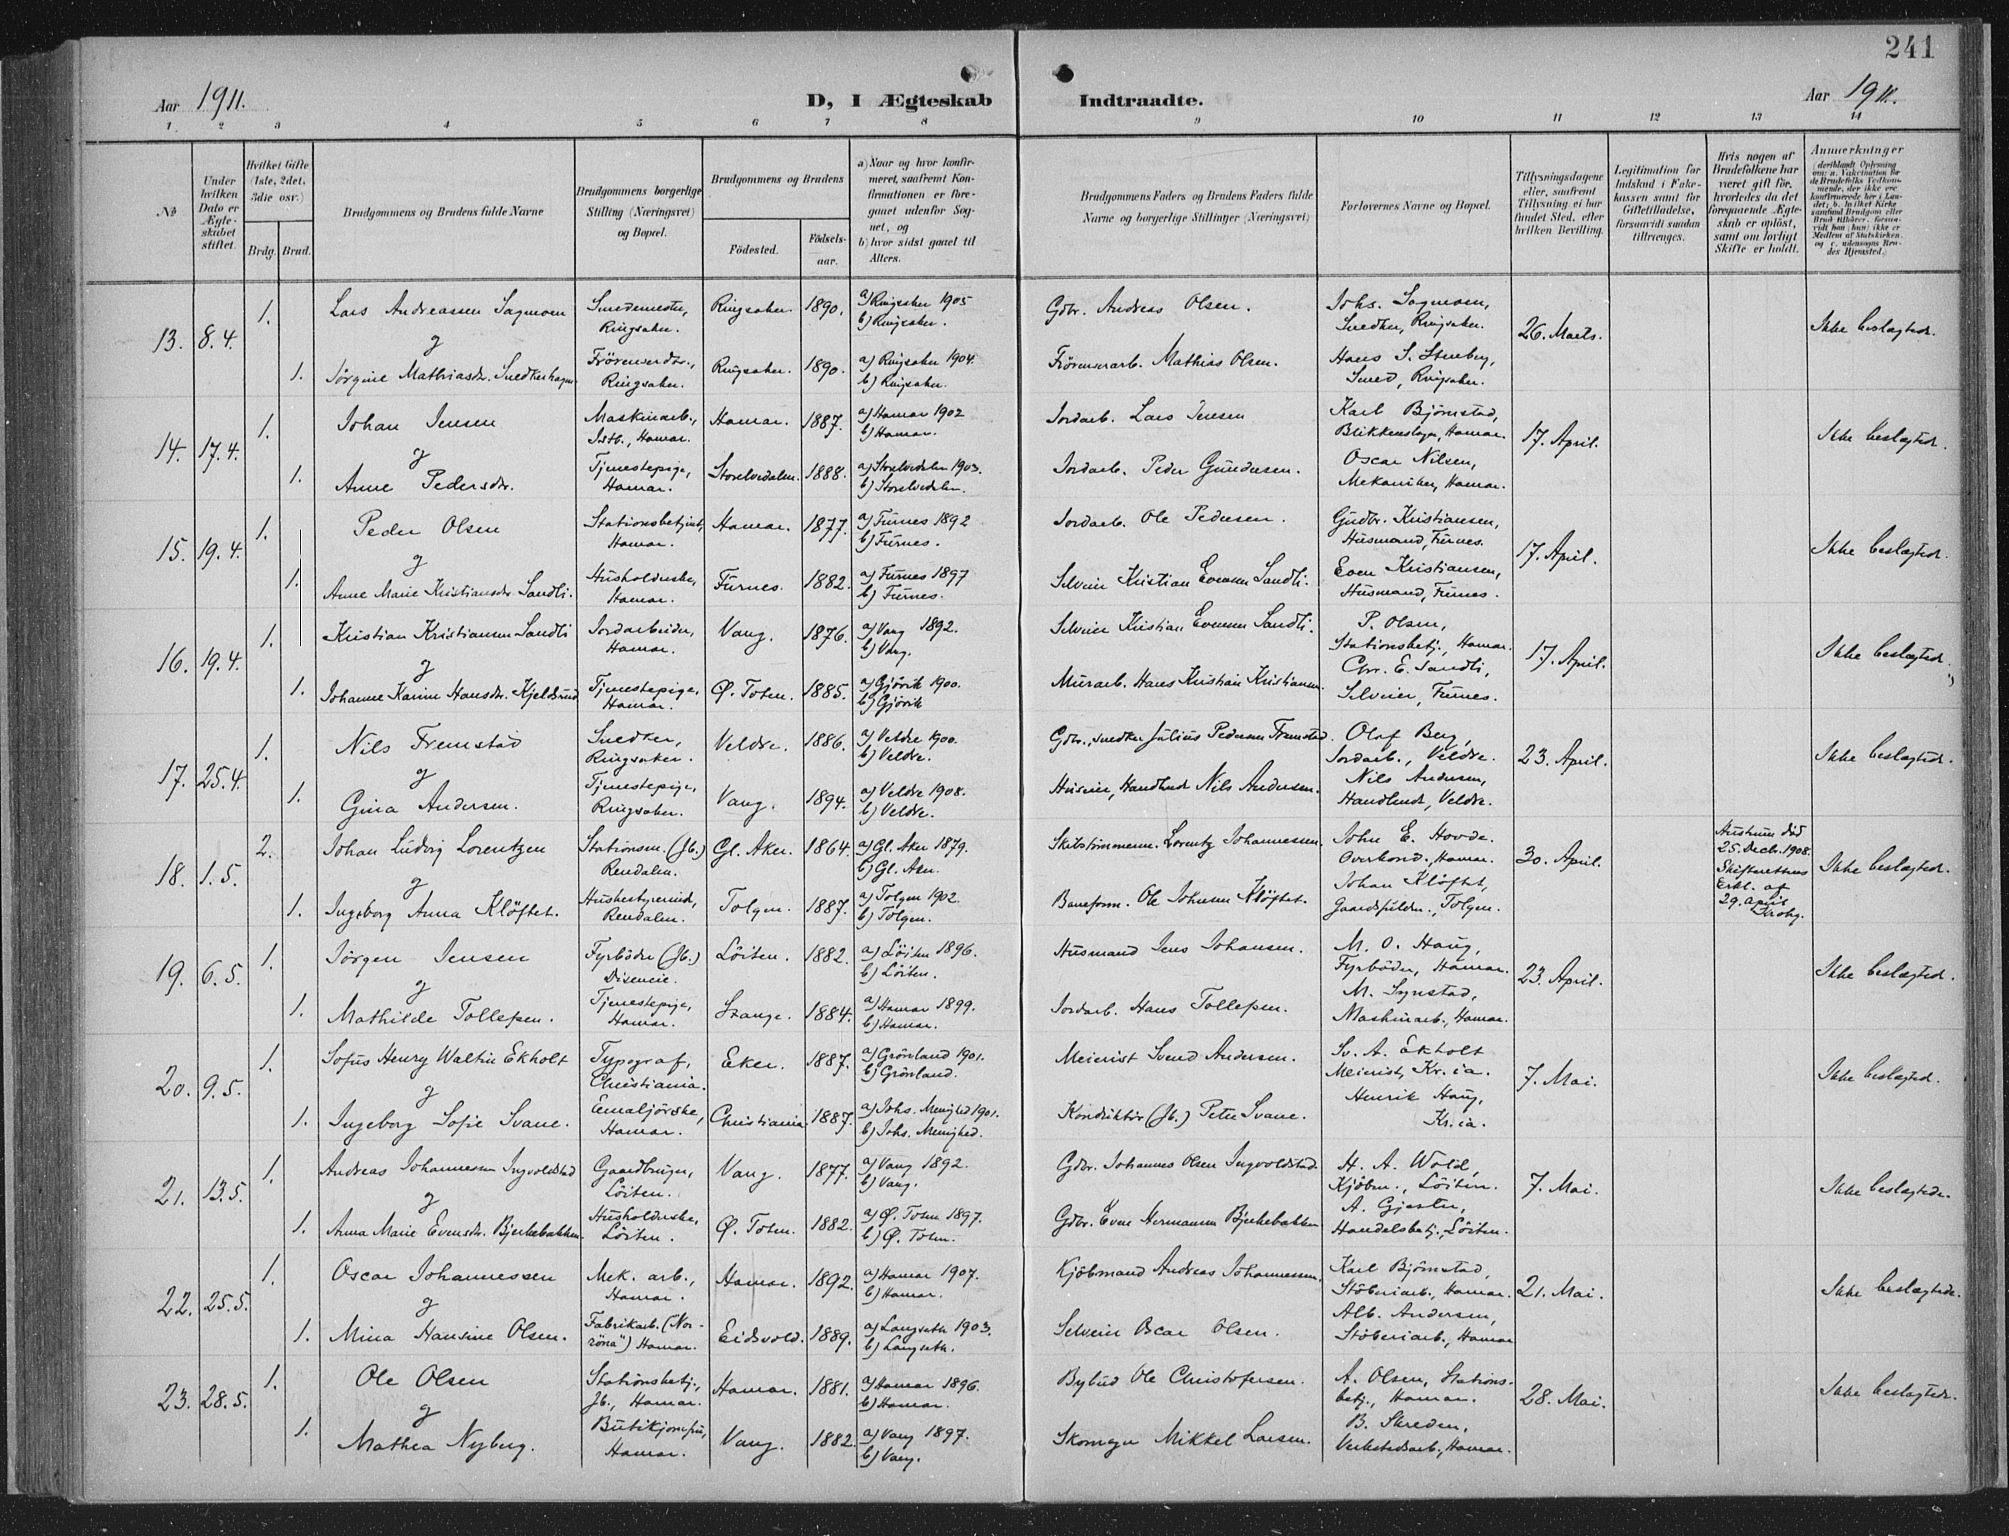 241
Aar 1911.
D, I Ægteskab Indtraadte.
Aar 1911.
1 2 3 4 5 6 7 8 9 10 11 12 13 14
No
Under hvilken Dato er Ægteskabet stiftet.
Hvilket Gifte (1ste, 2det, 3die osv.)
Brdg. Brud.
Brudgommens og Brudens fulde Navne
Brudgommens borgerlige Stilling (Næringsvei) og Bopæl.
Brudgommens og Brudens
Födested. Födsels-aar.
a) Naar og hvor konfirmeret, saafremt Konfirmationen er foregaaet udenfor Sognet, og
b) hvor sidst gaaet til Alters.
Brudgommens Faders og Brudens Faders fulde Navne og borgerlige Stillinger (Næringsvei)
Forlovernes Navne og Bopæl.
Tillysningsdagene eller, saafremt Tillysning ei har fundet Sted, efter hvilken Bevilling.
Legitimation for Indskud i Enkekassen samt for Giftetilladelse, forsaavidt saadan tiltrænges.
Hvis nogen af Brudefolkene har været gift för, hvorledes da det foregaaende Ægteskab er oplöst, samt om lovligt Skifte er holdt.
Anmerkninger
13. 8.4. 1. Lars Andreassen Sagmoen Snedkermester, Ringsaker. Ringsaker. 1890. a) Ringsaker 1905 b) Ringsaker. Gdbr. Andreas Olsen. Johs. Sagmoen, Snedker, Ringsaker. 26. Marts. Ikke beslægted.
g
1. Jørgine Mathiasdr. Snedkerhagen Ringsaker. Ringsaker. 1890. a) Ringsaker 1904. b) Ringsaker. Mathias Olsen. Hans S. Stenberg, Smed, Ringsaker.
14. 17.4. 1. Johan Jensen Maskinarb., Hamar. Hamar. 1887. a) Hamar 1902 b) Hamar. Jordarb. Lars Jensen Karl Bjørnstad, Blikkenslager, Hamar. 17. April. Ikke beslægted.
g
1. Anne Pedersdr. Tjenestepige, Hamar. Storelvedalen. 1888. a) Storelvedalen 1903. b) Storelvedalen. Jordarb. Peder Gundersen. Oscar Nilsen, Mekaniker, Hamar.
15. 19.4. 1. Peder Olsen Stationsbetjent, Hamar. Hamar. 1877. a) Furnes 1892 b) Furnes. Jordarb. Ole Pedersen. Gudbr. Kristiansen, Husmand, Furnes. 17. April. Ikke beslægted.
g
1. Anne Marie Kristiansdr. Sandli. Husholderske, Hamar. Furnes. 1882. a) Furnes 1897 b) Furnes. Selveier Kristian Evensen Sandli. Even Kristiansen, Husmand, Furnes.
16. 19.4. 1. Kristian Kristiansen Sandli Jordarbeider, Hamar. Vang. 1876. a) Vang 1892. b) Vang. Selveier Kristian Evensen Sandli. P. Olsen, Stationsbetj., Hamar. 17. April. Ikke beslægted.
g
1. Johanne Karine Hansdr. Kjeldsrud Tjenestepige, Hamar. Ø. Toten. 1885. a) Gjövik 1900. b) Gjövik Murarb. Hans Kristian Kristiansen. Chr. E. Sandli, Selveier, Furnes.
17. 25.4. 1. Nils Fremstad Snedker, Ringsaker. Veldre. 1886. a) Veldre 1900. b) Veldre. Gdbr., snedker Julius Pedersen Fremstad. Olaf Berg, Jordarb., Veldre. 23. April. Ikke beslægted.
g
1. Gina Andersen. Tjenestepige, Ringsaker. Vang. 1894. a) Veldre 1908. b) Veldre. Huseier, Handlende Nils Andersen. Nils Andersen, Handlende, Veldre.
18. 1.5. 2. Johan Ludvig Lorentzen Stationsm. (Jb.) Rendalen. Gl. Aker. 1864. a) Gl. Aker 1879. b) Gl. Aker. Skibstömmerm. Lorentz Johannessen. John E. Hovde. Overkond., Hamar. 30. April. Hustruen död 25. Decbr. 1908. Skifterettens Erkl. af 29. april Ikke beslægted.
g
1. Ingeborg Anna Klöftet. Husbestyrerinde, Rendalen. Tolgen. 1887. a) Tolgen 1902. b) Tolgen. Baneform. Ole Johnsen Klöftet. Johan Klöftet, Tolgen.
19. 6.5. 1. Jörgen Jensen Fyrböder (Jb.) Disenveien. Löiten. 1882. a) Löiten 1896. b) Löiten. Husmand Jens Johansen. M. O. Haug, Fyrböder, Hamar. 23. April. Ikke beslægted.
g
1. Mathilde Tollefsen. Tjenestepige, Hamar. Stange. 1884. a) Hamar 1899. b) Hamar. Jordarb. Hans Tollefsen. M. Synstad, Maskinarb., Hamar.
20. 9.5. 1. Sofus Henry Walter Ekholt Typograf, Christiania. Eker. 1887. a) Grönland 1901. b) Grönland. Meierist Svend Andersen. Sv. A. Ekholt Meierist, Kr.ia. 7. Mai. Ikke beslægted.
g
1. Ingeborg Sofie Svane. Hamar. Christiania. 1887. a) Johs. Menighed 1901. b) Johs. Menighed. Konduktör (Jb.) Peter Svane. Henrik Haug, Kr.ia.
21. 13.5. 1. Andreas Johannessen Ingvoldstad Gaardbruger, Löiten. Vang. 1877. a) Vang 1892. b) Vang. Gdbr. Johannes Olsen Ingvoldstad. H. A. Wold, Kjöbm., Löiten. 7. Mai. Ikke beslægtede.
g
1. Anna Marie Evensdr. Bjerkebakken. Husholderske, Löiten. Ø. Toten. 1882. a) Ø. Toten 1897. b) Ø. Toten. Gdbr. Even Hermansen Bjerkebakken A. Gjester, Handelsbetj., Löiten.
22. 25.5. 1. Oscar Johannessen Mek. arb., Hamar. Hamar. 1892. a) Hamar 1907. b) Hamar. Kjöbmand Andreas Johannessen. Karl Bjørnstad, Stöberiarb., Hamar. 21. Mai. Ikke beslægtede.
g
1. Mina Hansine Olsen. Fabrikarb. ("Norröna") Hamar. Eidsvold. 1889. a) Langseth 1903. b) Langseth. Selveier Oscar Olsen. Alb. Andersen, Stöberiarb., Hamar
23. 28.5. 1. Ole Olsen Stationsbetj., Jb., Hamar. Hamar. 1881. a) Hamar 1896. b) Hamar. Bybud Ole Christofersen. A. Olsen, Stationsbetj., Hamar. 28. Mai. Ikke beslægtede.
g
1. Mathea Nyberg. Butikjomfru, Hamar. Vang. 1882. a) Vang 1897. b) Vang. Skomager Mikkel Larsen. B. Skreden, Verkstedsarb., Hamar.